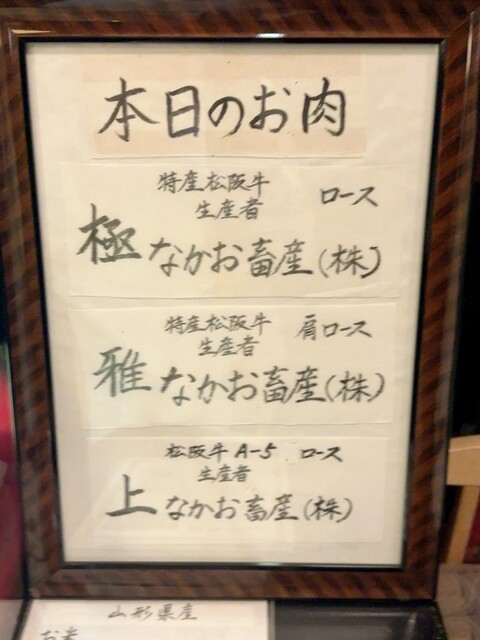 本日のお肉
特産松阪牛 ロース
生産者
極 なかお畜産(株)
特産松阪牛 肩ロース
生産者
雅 なかお畜産(株)
松阪牛 A-5 ロース
生産者
上 なかお畜産(株)
山形県産
お米